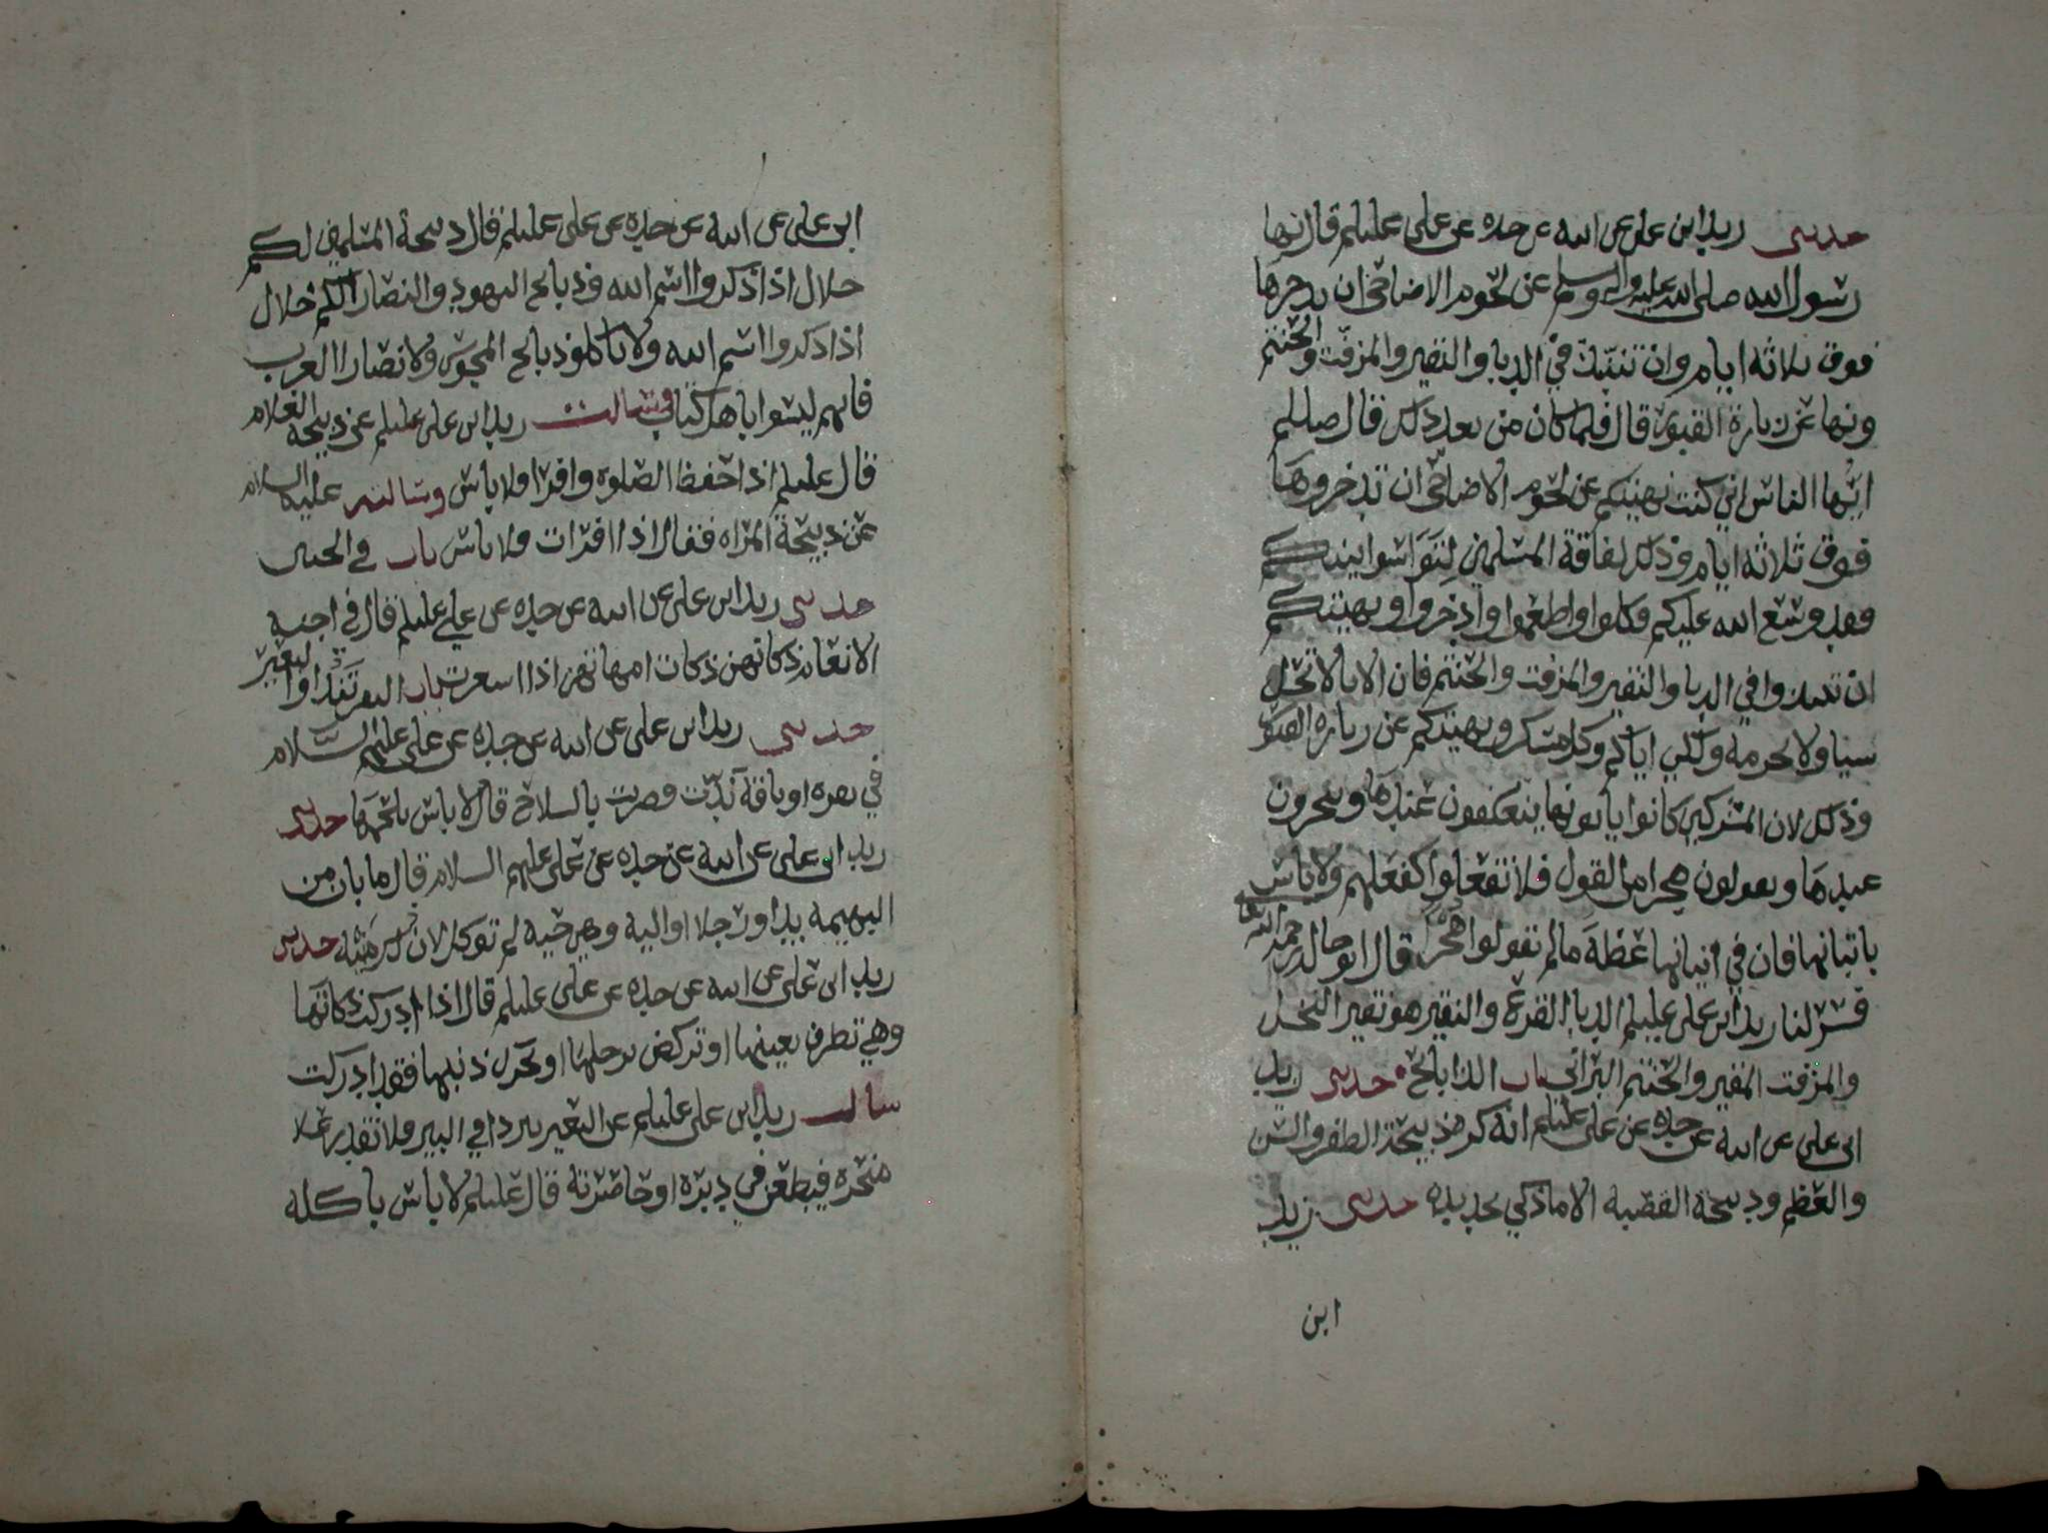 حدثني زيد ابن علي عن ابيه عن جده عن علي عليلم قال نها
رسول الله صلى الله عليه واله وسلم عن لحوم الاضاحي ان ندخرها
فوق ثلاثة ايام وان ننتبذ في الدبا والنقير والمزفت والحنتم
ونها عن زيارة القبور قال فلما كان من بعد ذلك قال صللم
ايها الناس اني كنت نهيتكم عن لحوم الاضاحي ان تدخروها
فوق ثلاثة ايام وذلك لفاقة المسلمين لتتواسوا بينكم
فقد وسع الله عليكم فكلوا واطعموا وادخروا ونهيتكم
ان تنبذوا في الدبا والنقير والمزفت والحنتم فان الانا لا تحل
شيا ولا تحرمه ولكن اياكم وكل مسكر ونهيتكم عن زيارة القبور
وذلك لان المشركين كانوا ياتونها فيعكفون عندها وينحرون
عندها ويقولون هجرا من القول فلا تفعلوا كفعلهم ولا باس
باتيانها فان في اتيانها عظة ما لم تقولوا هجرا قال ابو خالد رحمه الله
فسر لنا زيد ابن علي عليلم الدبا القرع والنقير هو نقير النخل
والمزفت المقير والحنتم البراني باب الذبايح حدثني زيد
ابن علي عن ابيه عن جده عن علي عليلم انه كره ذبيحة الظفر والسن
والعظم وذبيحة القصبة الا ما ذكي بحديدة حدثني زيد
ابن
ابن علي عن ابيه عن جده عن علي عليلم قال ذبيحة المسلمين لكم
حلال اذا ذكروا اسم الله وذبايح اليهود والنصارا لكم حلال
اذا ذكروا اسم الله ولا تاكلو ذبايح المجوس ولا نصارا العرب
فانهم ليسوا باهل كتاب وسالت زيد ابن علي عليلم عن ذبيحة الغلام
قال عليلم اذا حفظ الصلوة وافرا فلا باس وسالته عليه السلام
عن ذبيحة المراه فقال اذا افرات فلا باس باب في الجنين
حدثني زيد ابن علي عن ابيه عن جده عن علي عليلم قال في اجنة
الانعام ذكاتهن ذكات امهاتهن اذا اشعرت باب البقر تند او البعير
حدثني زيد ابن علي عن ابيه عن جده عن علي عليهم السلام
في بقرة او ناقة ندت فضربت بالسلاح قال لا باس بلحمها حدثني
زيد ابن علي عن ابيه عن جده عن علي عليهم السلام قال ما بان من
البهيمة يدا او رجلا او الية وهي حية لم توكل لان ذلك ميتة حدثني
زيد ابن علي عن ابيه عن جده عن علي عليلم قال اذا ادركت ذكاتها
وهي تطرف بعينها او تركض برجلها او تحرك ذنبها فقد ادركت
سالت زيد ابن علي عليلم عن البعير يتردا في البير فلا تقدر على
منحره فيطعن في دبره او خاصرته قال عليلم لا باس باكله